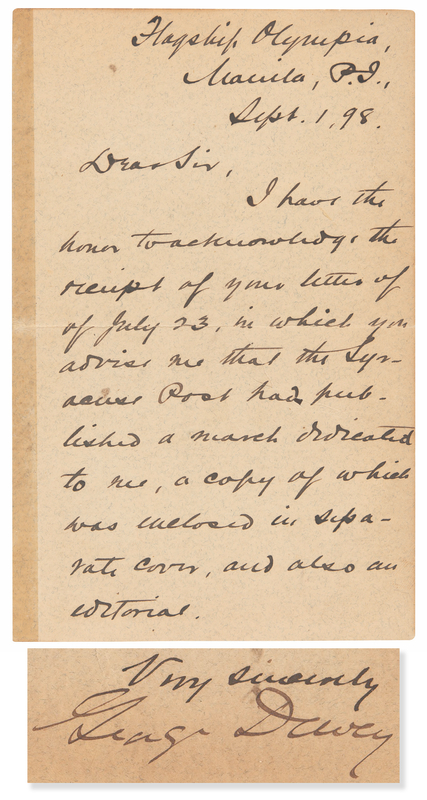 Flagship Olympia,
Manila, P.I.,
Sept. 1, 98.
Dear Sir,
I have the
honor to acknowledge the
receipt of your letter of
of July 23, in which you
advise me that the Syr-
acuse Post had pub-
lished a march dedicated
to me, a copy of which
was inclosed in sepa-
rate cover, and also an
editorial.
Very sincerely
George Dewey